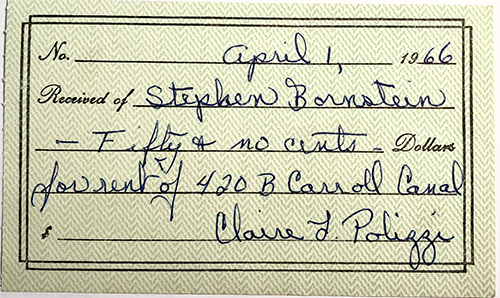 No. April 1, 1966
Received of Stephen Bornstein
- Fifty & no cents - Dollars
for rent of 420 B Carroll Canal
$ Claire L. Polizzi